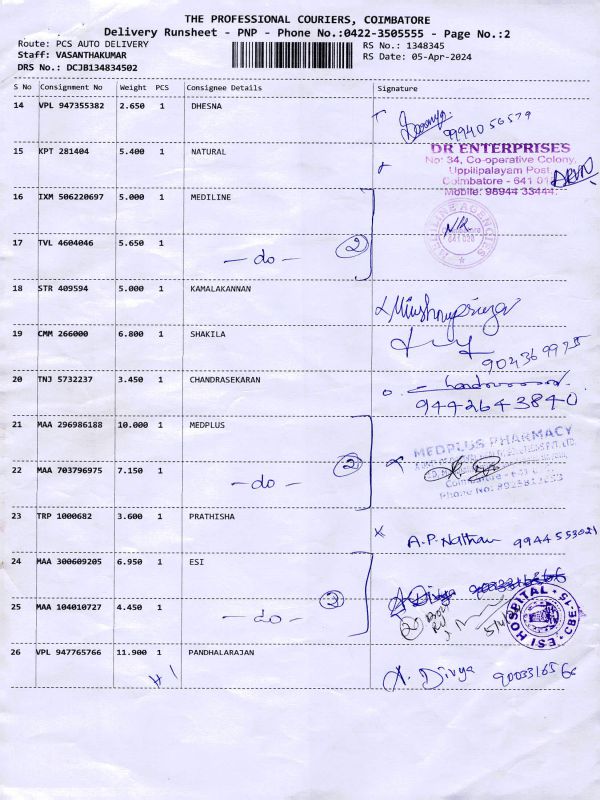 THE PROFESSIONAL COURIERS, COIMBATORE
Delivery Runsheet - PNP - Phone No.:0422-3505555 - Page No.:2
Route: PCS AUTO DELIVERY RS No.: 1348345
Staff: VASANTHAKUMAR RS Date: 05-Apr-2024
DRS No.: DCJB134834502
S No Consignment No Weight PCS Consignee Details Signature
14 VPL 947355382 2.650 1 DHESNA
15 KPT 281404 5.400 1 NATURAL
DR ENTERPRISES
No: 34, Co-operative Colony,
Uppilipalayam Post,
Coimbatore - 641 01
Mobile: 98944 33444
16 IXM 506220697 5.000 1 MEDILINE
MEDILINE AGENCIES
17 TVL 4604046 5.650 1 - do - 2
18 STR 409594 5.000 1 KAMALAKANNAN
19 CMM 266000 6.800 1 SHAKILA
20 TNJ 5732237 3.450 1 CHANDRASEKARAN
9442643840
21 MAA 296986188 10.000 1 MEDPLUS
MEDPLUS PHARMACY
22 MAA 703796975 7.150 1 - do - 2
Phone No:
23 TRP 1000682 3.600 1 PRATHISHA A.P. Nathan 9944553021
24 MAA 300609205 6.950 1 ESI
25 MAA 104010727 4.450 1 - do - 2
ESI HOSPITAL CBE-15
26 VPL 947765766 11.900 1 PANDHALARAJAN Divya 9003316566